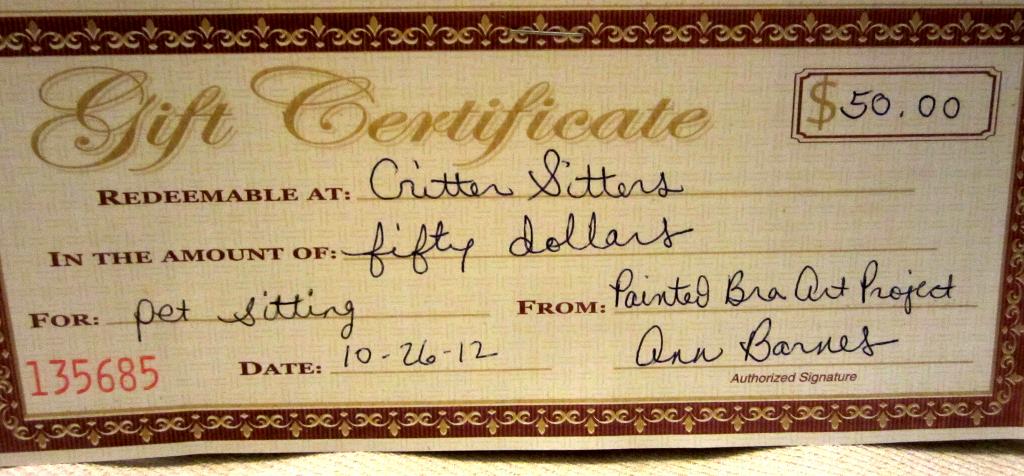 Gift Certificate $50.00
REDEEMABLE AT: Critter Sitters
IN THE AMOUNT OF: fifty dollars
FOR: pet sitting FROM: Painted Bra Art Project
135685 DATE: 10-26-12 Ann Barnes
Authorized Signature